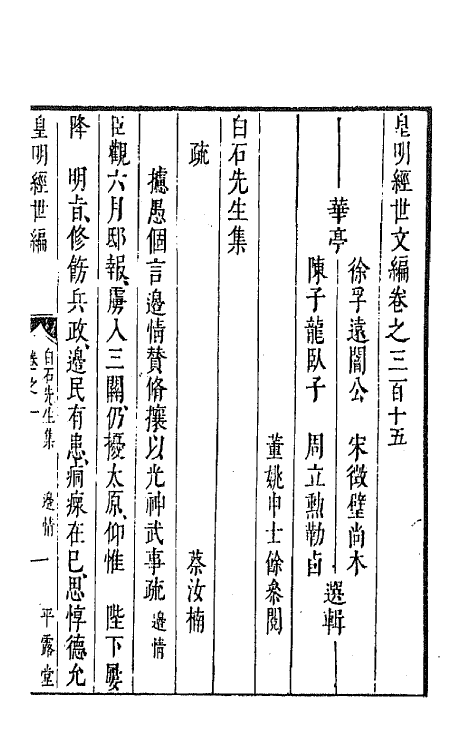 皇明經世文編卷之三百十五
華亭
徐孚遠闇公 宋徵璧尚木
陳子龍臥子 周立勳勒卣
選輯
董姚申士徐參閱
白石先生集
蔡汝楠
疏
攄愚個言邊情贊脩攘以光神武事疏 邊情
臣觀六月邸報、虜入三關、仍擾太原、仰惟 陛下屢
降 明旨、修飭兵政、邊民有患、痌瘝在已、思惇德允
皇明經世編
白石先生集
卷之一
邊情 一
平露堂